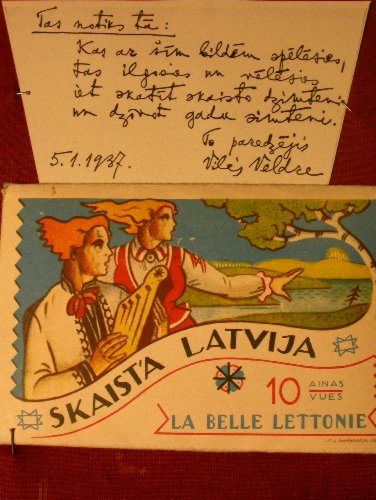 Tas notiks tā:
Kas ar šīm bildēm spēlēsies,
tas ilgosies un vēlēsies
iet skatīt skaisto dzimteni
un dzīvot gadu simteni.
To paredzējis
5.1.1937. Vilis Veldre
SKAISTĀ LATVIJA
10 AINAS
VUES
LA BELLE LETTONIE